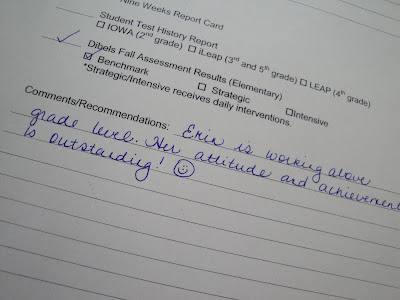 Nine Weeks Report Card
Student Test History Report
☐ IOWA (2nd grade) ☐ iLeap (3rd and 5th grade) ☐ LEAP (4th grade)
Dibels Fall Assessment Results (Elementary)
☑ Benchmark ☐ Strategic ☐Intensive
*Strategic/Intensive receives daily interventions.
Comments/Recommendations: Erin is working above
grade level. Her attitude and achievement
is outstanding! ☺